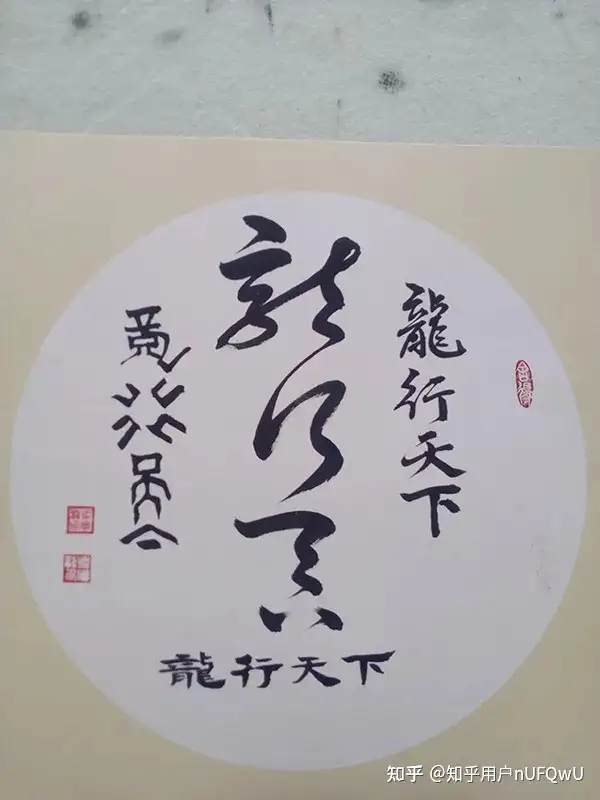 龍行天下
龍行天下
龍行天下
龍行天下
知乎 @知乎用户nUFQwU